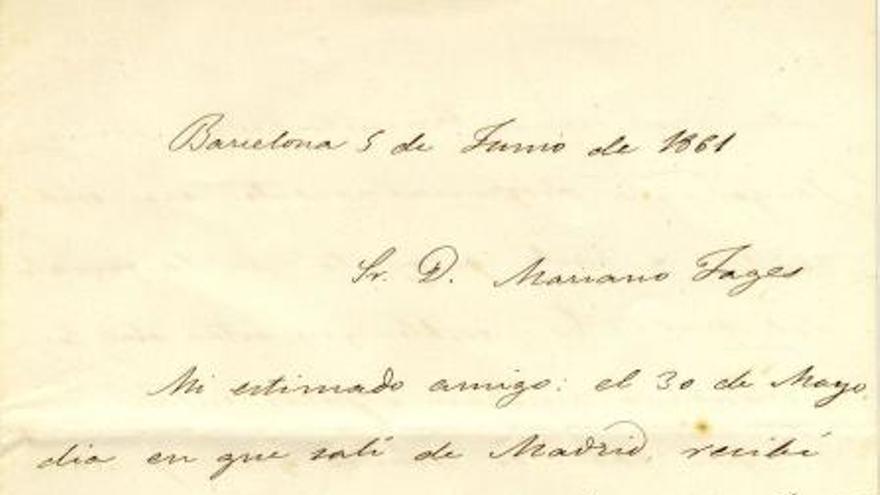 Barcelona 5 de Junio de 1861
Sr. D. Mariano Fages
Mi estimado amigo: el 30 de Mayo,
dia en que salí de Madrid, recibí